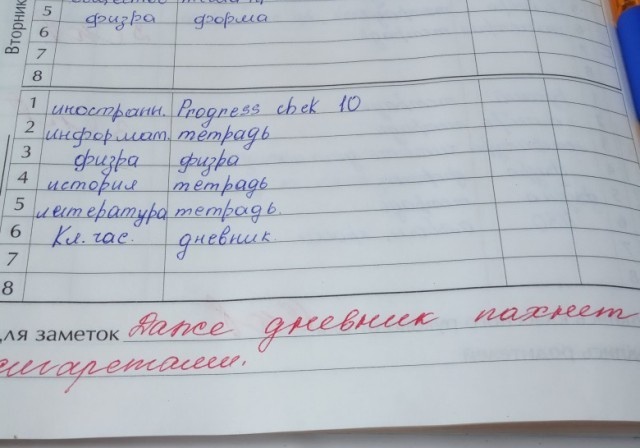 Вторник
5
6 физра форма
7
8
1 иностранн. Progress chek 10
2 информат. тетрадь
3 физра физра
4 история тетрадь
5 литература тетрадь.
6 Кл. час. дневник
7
8
для заметок Даже дневник пахнет
сигаретами.